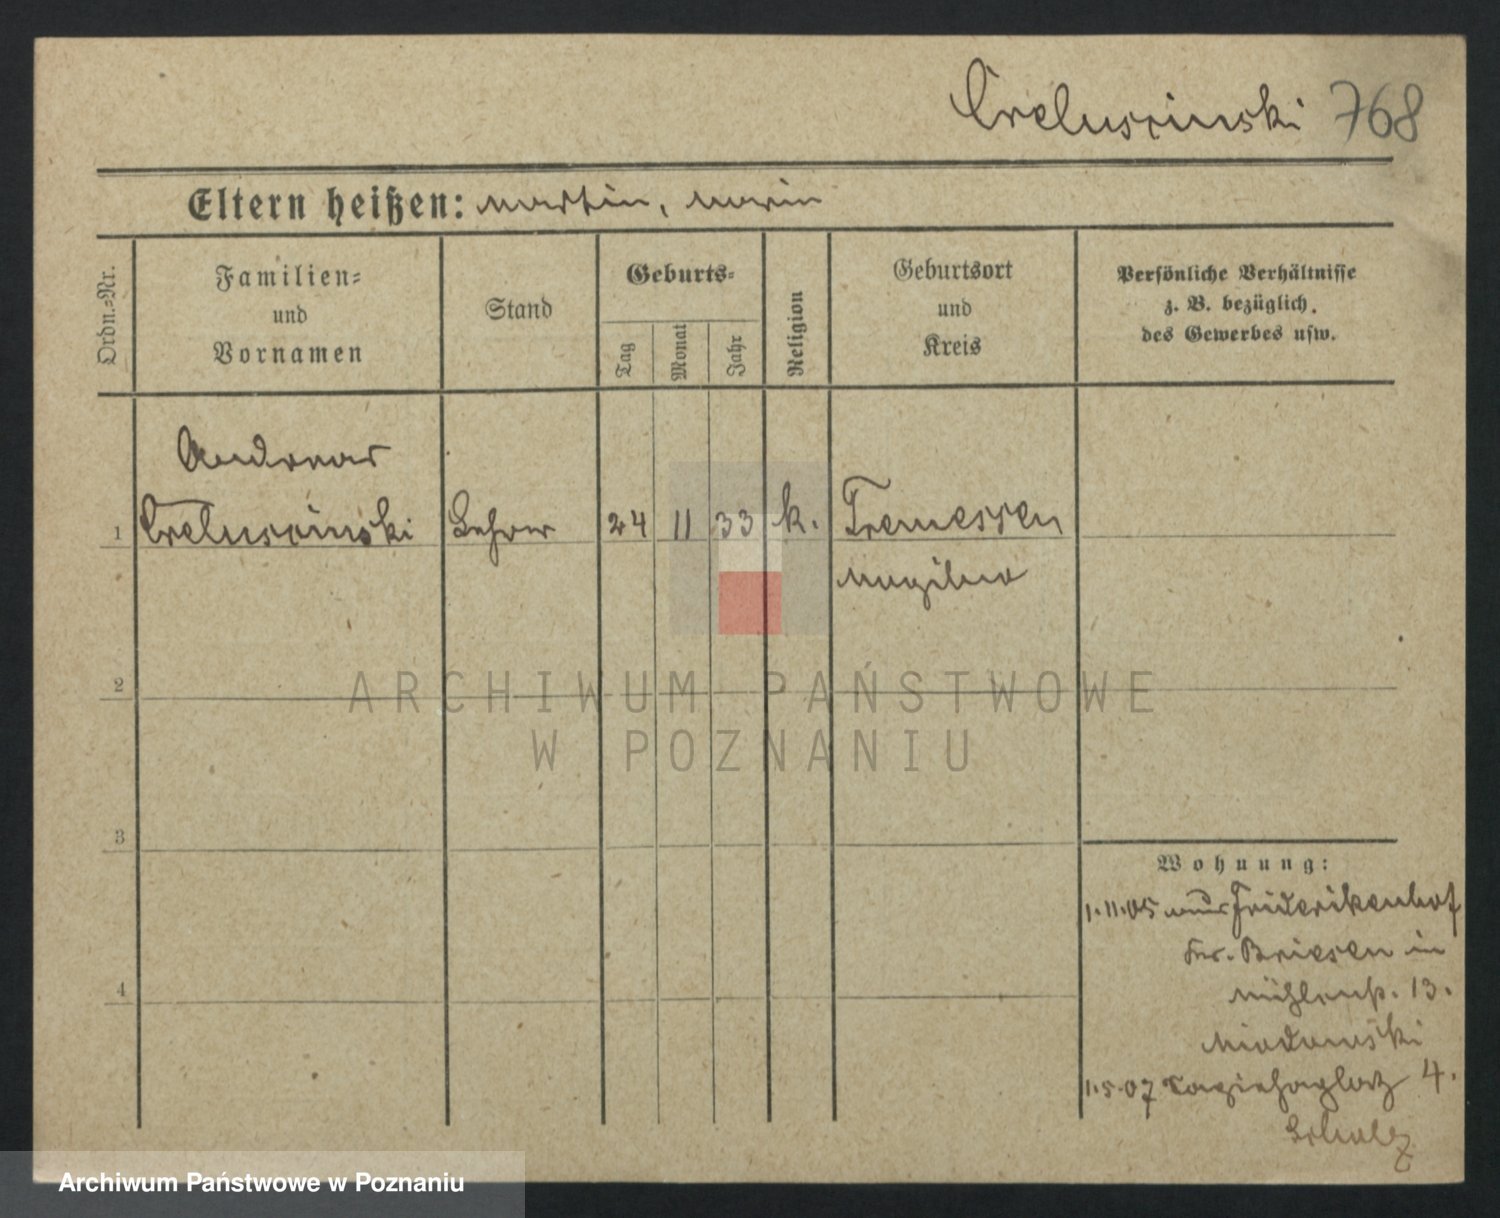 Creluscinski 768
Eltern heißen: Martin, Marie
Ordn.-Nr.
Familien-
und
Vornamen
Stand
Geburts-
Tag
Monat
Jahr
Religion
Geburtsort
und
Kreis
Persönliche Verhältnisse
z. B. bezüglich
des Gewerbes usw.
Andreas
1 Creluscinski Lehrer 24 11 33 k. Tremessen
Mogilno
2
ARCHIWUM PAŃSTWOWE
W POZNANIU
3
Wohnung:
1.11.05 aus Friderikenhof
Kr. Briesen in
Mühlenstr. 13.
4
Miodowski
1.5.07 Sapiehaplatz 4.
Scholz
Archiwum Państwowe w Poznaniu